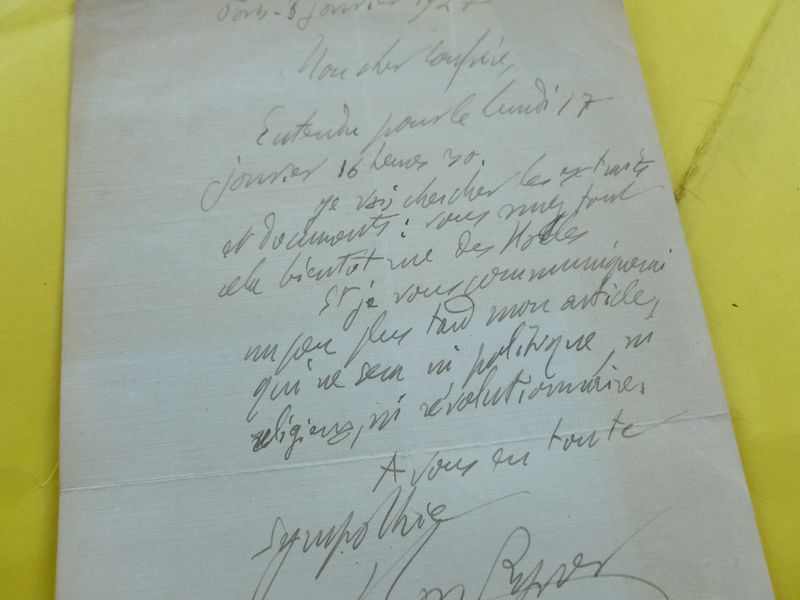 Paris - 3 janvier 1927
Mon cher Confrère,
Entendu pour le lundi 17
janvier 16 heures 30.
Je vais chercher les extraits
et documents : vous aurez tout
cela bientôt rue des Halles
Et je vous communiquerai
un peu plus tard mon article,
qui ne sera ni politique, ni
religieux, ni révolutionnaire.
A vous en toute
sympathie